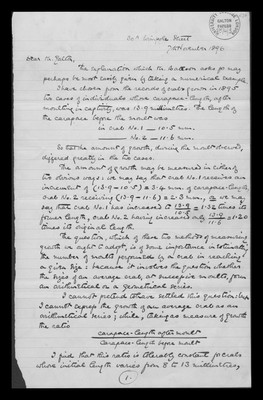 GALTON PAPERS
30A Wimpole Street
7th November 1896
Dear Mr. Galton,
The explanation which Mr. Watson asks for may
perhaps be most easily given by taking a numerical example.
I have chosen from the records of crabs grown in 1895
two cases of individuals whose carapace-length, after
moulting in captivity, was 13.9 millimetres. The length of
the carapace before the moult was
in crab No. 1 — 10.5 mm.
— No. 2 — 11.6 mm.
So that the amount of growth, during the moult observed,
differed greatly in the two cases.
The amount of growth may be measured in either of
two obvious ways: we may say that crab No. 1 receives an
increment of (13.9 — 10.5) = 3.4 mm. of carapace-length,
crab No. 2 receiving (13.9 — 11.6) = 2.3 mm.; or we may
say that crab No. 1 has increased to 13.9/10.5 = 1.32 times its
former length, crab No. 2 having increased only 13.9/11.6 = 1.20
times its original length.
The question, which of these two methods of measuring
growth we ought to adopt, is of some importance in estimating
the number of moults performed by a crab in reaching
a given size: because it involves the question whether
the sizes of an average crab at successive moults, form
an arithmetical or a geometrical series.
I cannot pretend to have settled this question; but
I cannot express the growth of an average crab as an
arithmetical series; while, taking as measure of growth
the ratio
carapace-length after moult
Carapace-length before moult
I find that this ratio is literally constant for crabs
whose initial length varies from 8 to 13 millimetres,
1.